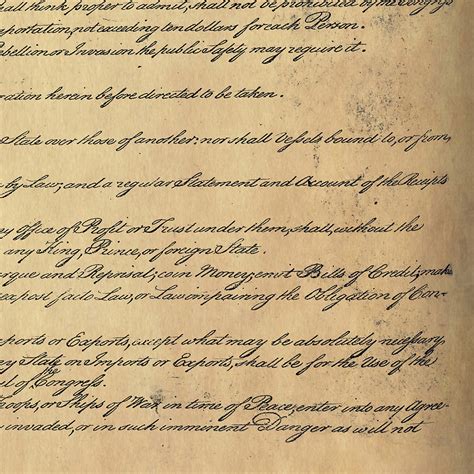 all think proper to admit, shall not be prohibited by the Congress
portation, not exceeding ten dollars for each Person.
ebellion or Invasion the public Safety may require it.
ration herein before directed to be taken.
State over those of another: nor shall Vessels bound to, or from,
by Law; and a regular Statement and Account of the Receipts
ny Office of Profit or Trust under them, shall, without the
any King, Prince, or foreign State.
rque and Reprisal; coin Money; emit Bills of Credit; make
ex post facto Law, or Law impairing the Obligation of Con-
ports or Exports, except what may be absolutely necessary
ey State on Imports or Exports, shall be for the Use of the
l of the Congress.
roops, or Ships of War in time of Peace, enter into any Agree-
invaded, or in such imminent Danger as will not